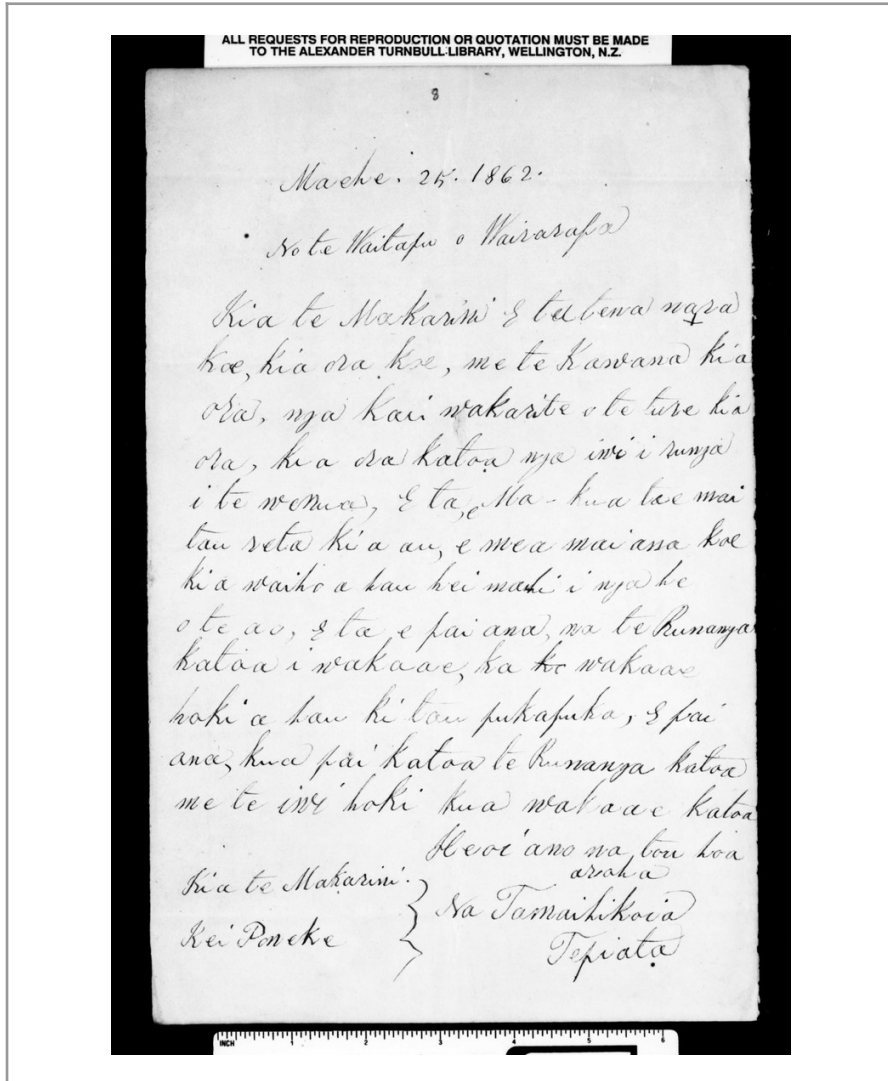 ALL REQUESTS FOR REPRODUCTION OR QUOTATION MUST BE MADE
TO THE ALEXANDER TURNBULL LIBRARY, WELLINGTON, N.Z.
8
Maehe. 25. 1862.
No te Waitapu o Wairarapa
Kia te Makarini E ta tena nara
koe, kia ora koe, me te Kawana kia
ora, nga kai wakarite o te ture kia
ora, kia ora katoa nga iwi i runga
i te wenua, E ta, e Ma - kua tae mai
tau reta ki a au, e mea mai ana koe
kia waiho a hau hei mahi i nga he
o te ao, E ta e pai ana, na te Runanga
katoa i wakaae, ka wakaae
hoki a hau ki tau pukapuka, E pai
ana, kua pai katoa te Runanga katoa
me te iwi hoki kua wakaae katoa
Heoi ano na tou hoa
aroha
Kia te Makarini.
Na Tamaihikoia
Kei Poneke
Tepiata
INCH 1 2 3 4 5 6